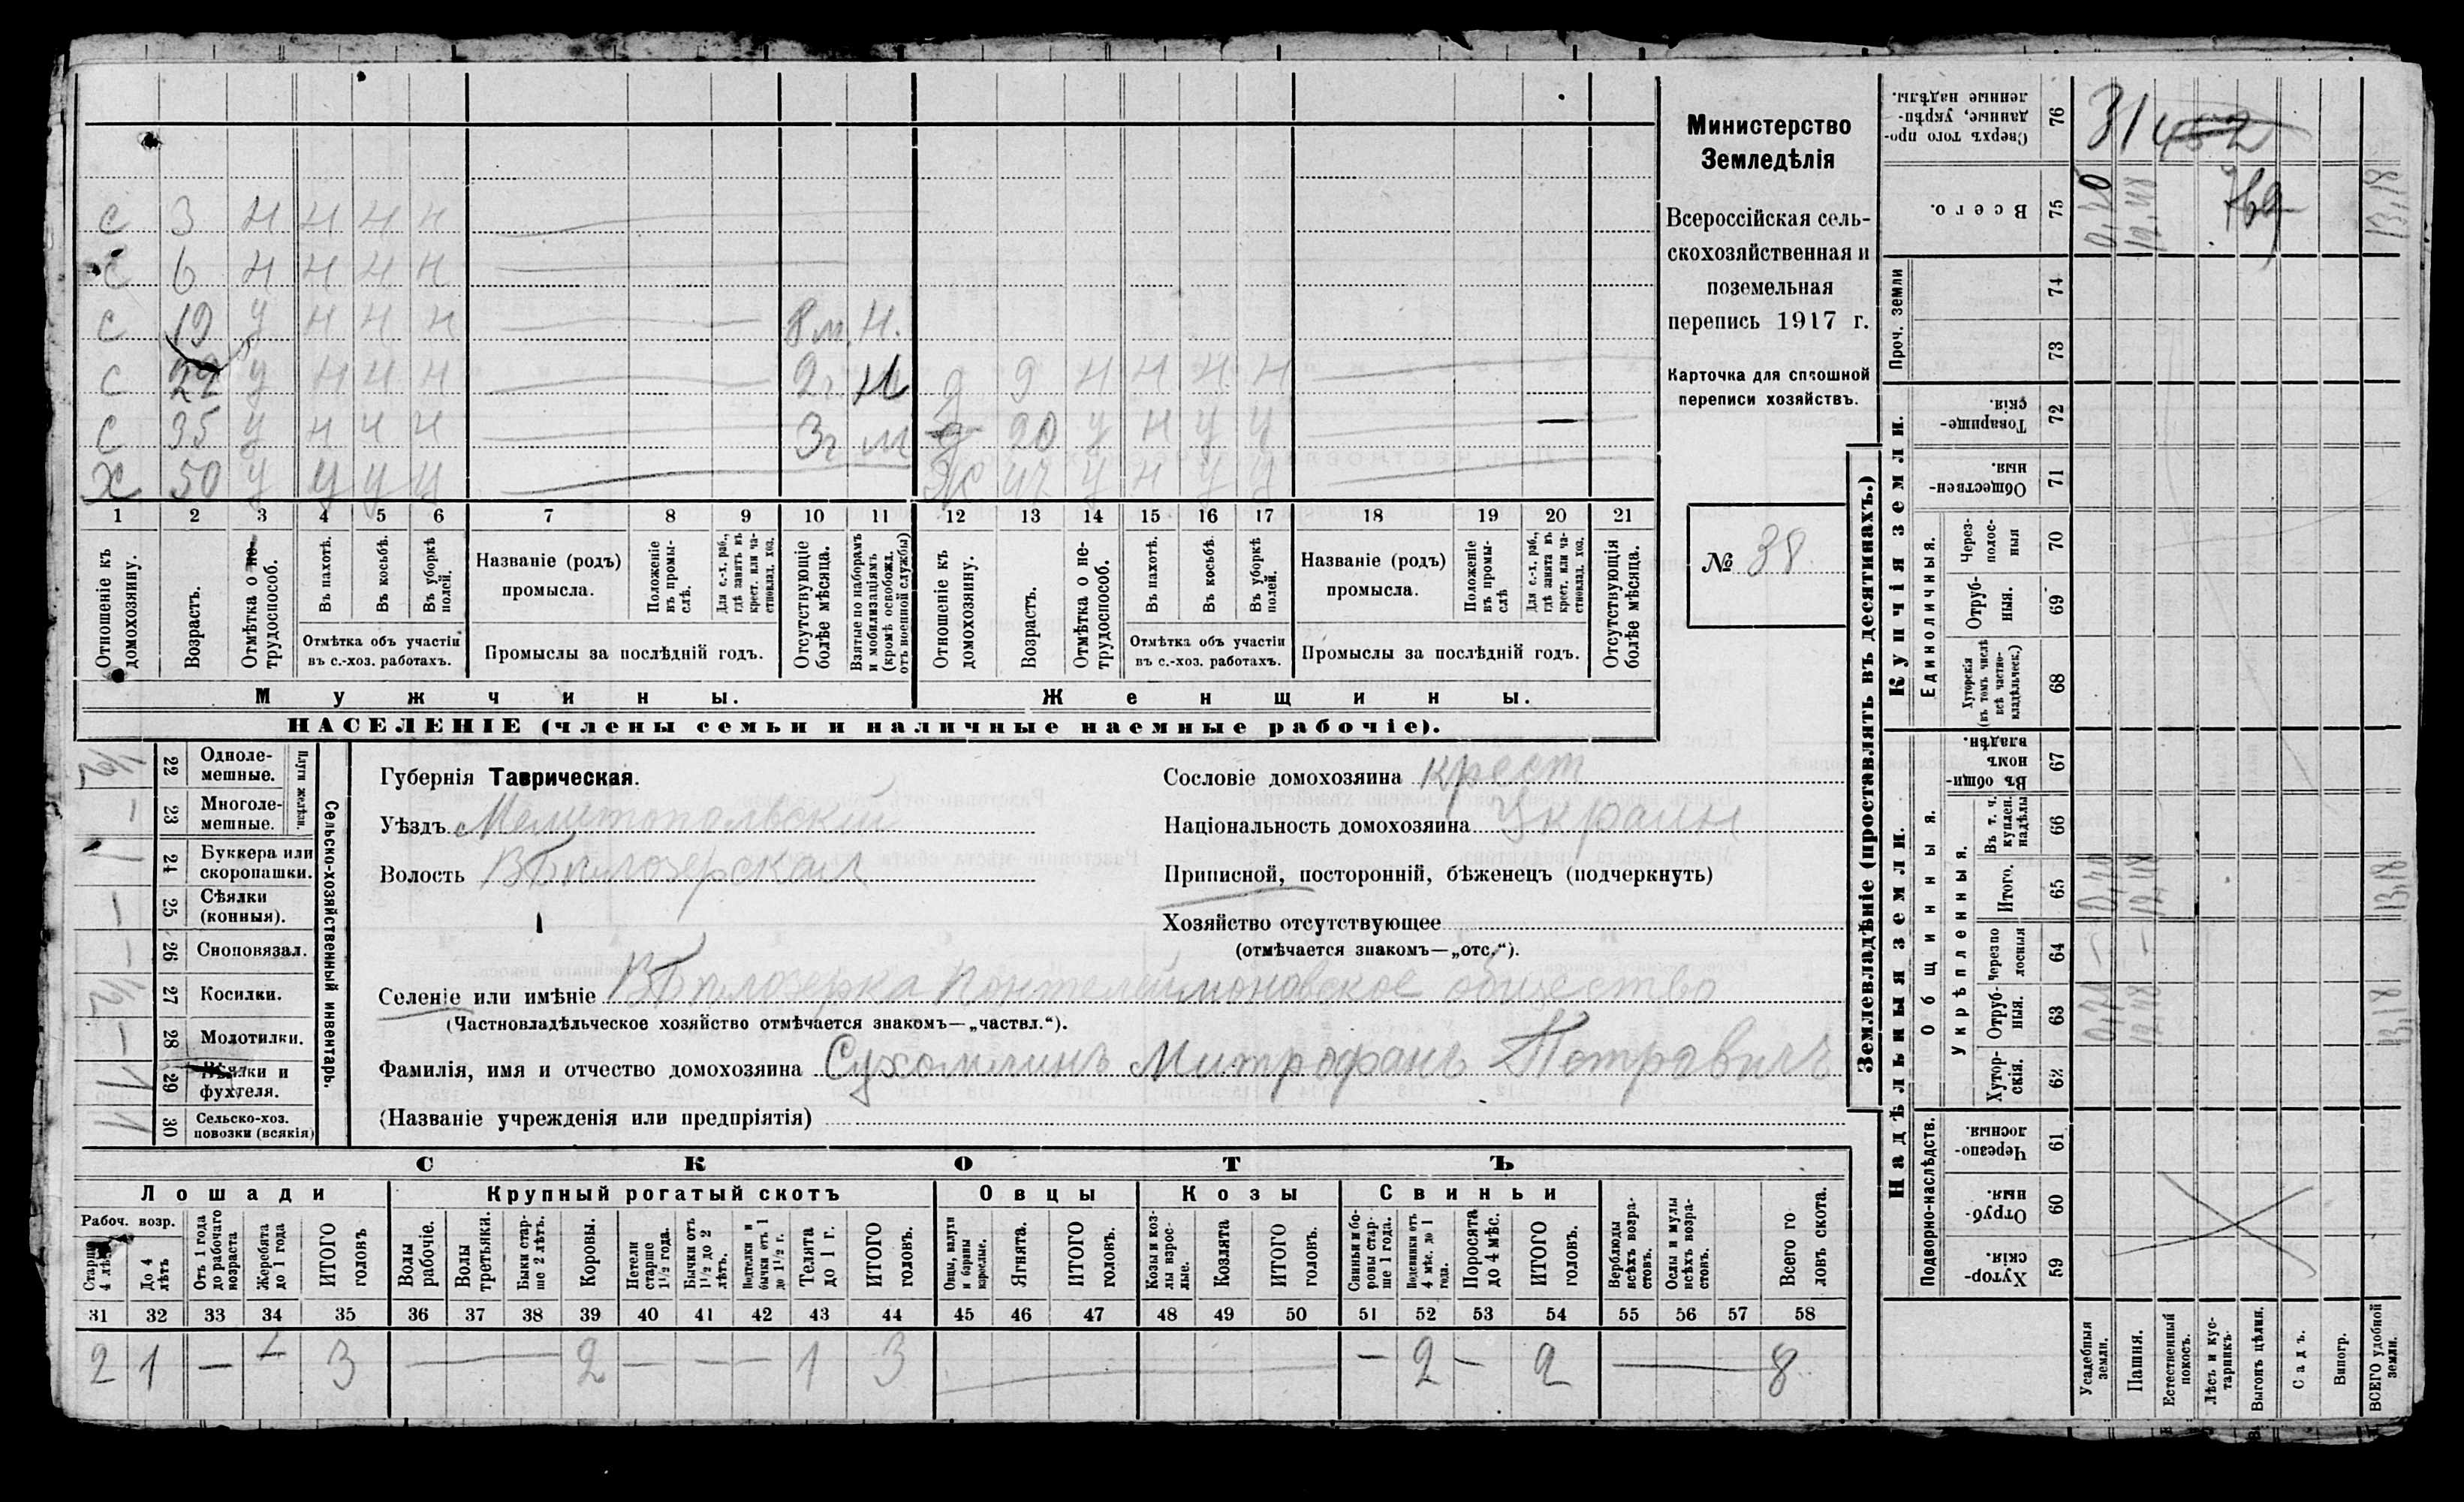 с 3 н н н н
с 6 н н н н
с 19 у н н н 8 м. н.
с 22 у н н н 2 г. н д 9 н н н н
с 35 у н н н 3 г м д 20 у н у у
Х 50 у у у у Ж 47 у н у у
1 2 3 4 5 6 7 8 9 10 11 12 13 14 15 16 17 18 19 20 21
Отношеніе къ домохозяину.
Возрастъ.
Отмѣтка о не-трудоспособ.
Въ пахотѣ.
Въ косьбѣ.
Въ уборкѣ полей.
Отмѣтка объ участіи
въ с.-хоз. работахъ.
Названіе (родъ)
промысла.
Положеніе въ промы-слѣ.
Для с.-х. раб., гдѣ занятъ въ крест. или ча-стновлад. хоз.
Промыслы за послѣдній годъ.
Отсутствующіе болѣе мѣсяца.
Взятые по наборамъ и мобилизаціямъ (кромѣ освобожд. отъ военной службы)
Отношеніе къ домохозяину.
Возрастъ.
Отмѣтка о не-трудоспособ.
Въ пахотѣ.
Въ косьбѣ.
Въ уборкѣ полей.
Отмѣтка объ участіи
въ с.-хоз. работахъ.
Названіе (родъ)
промысла.
Положеніе въ промы-слѣ
Для с.-х. раб., гдѣ занята въ крест. или ча-стновлад. хоз.
Промыслы за послѣдній годъ.
Отсутствующія болѣе мѣсяца.
Мужчины.
Женщины.
НАСЕЛЕНІЕ (члены семьи и наличные наемные рабочіе).
Министерство
Земледѣлія
Всероссійская сель-
скохозяйственная и
поземельная
перепись 1917 г.
Карточка для сплошной
переписи хозяйствъ.
№ 38
Сельско-хозяйственный инвентарь.
Плуги желѣзн.
1/2 22 Однолемешные.
– 23 Многолемешные.
1 24 Буккера или скоропашки.
– 25 Сѣялки (конныя).
– 26 Сноповязал.
1/2 27 Косилки.
– 28 Молотилки.
1 29 Вѣялки и фухтеля.
1 30 Сельско-хоз. повозки (всякія)
Губернія Таврическая.
Уѣздъ Мелитопольскій
Волость В Бѣлозерская
Сословіе домохозяина крест
Національность домохозяина Украин
Приписной, посторонній, бѣженецъ (подчеркнуть)
Хозяйство отсутствующее
(отмѣчается знакомъ—„отс.“).
Селеніе или имѣніе В Бѣлозерка Понтелеймоновское общество
(Частновладѣльческое хозяйство отмѣчается знакомъ—„частвл.“).
Фамилія, имя и отчество домохозяина Сухомлинъ Митрофанъ Петровичъ
(Названіе учрежденія или предпріятія)
СКОТЪ
Лошади
Крупный рогатый скотъ
Овцы
Козы
Свиньи
Рабоч. возр.
Старше 4 лѣтъ
До 4 лѣтъ
Отъ 1 года до рабочаго возраста
Жеребята до 1 года
ИТОГО головъ
Волы рабочіе.
Волы третьяки.
Быки стар-ше 2 лѣтъ.
Коровы.
Нетели старше 1½ года.
Бычки отъ 1½ до 2 лѣтъ.
Подтелки и бычки отъ 1 до 1½ г.
Телята до 1 г.
ИТОГО головъ.
Овцы, валухи и бараны взрослые.
Ягнята.
ИТОГО головъ.
Козы и коз-лы взрос-лые.
Козлята
ИТОГО головъ.
Свиньи и бо-ровы стар-ше 1 года.
Подсвинки отъ 4 мѣс. до 1 года.
Поросята до 4 мѣс.
ИТОГО головъ.
Верблюды всѣхъ возра-стовъ.
Ослы и мулы всѣхъ возра-стовъ.
Всего го ловъ скота.
31 32 33 34 35 36 37 38 39 40 41 42 43 44 45 46 47 48 49 50 51 52 53 54 55 56 57 58
2 1 — — 3 — 2 — — — 1 3 — — 2 — 2 — 8
Землевладѣніе (проставлять въ десятинахъ.)
Сверхъ того про-данные, укрѣп-ленные надѣлы. 76 31 452
Всего. 75 0,70 12,48 13,18
Проч. земли
74
73
Купчія земли.
Товарище-скія. 72
Обществен-ныя. 71
Единоличныя.
Через-полос-ныя 70
Отруб-ныя. 69
Хуторскія (въ томъ числѣ всѣ частно-владѣльческ.) 68
Надѣльныя земли.
Общинныя.
Въ общи-номъ владѣн. 67
Укрѣпленныя.
Въ т. ч. куплен. надѣлы 66
Итого. 65 0,70 12,48 13,18
Черезпо лосныя 64 – –
Отруб-ныя. 63 0,70 12,48 13,18
Хутор-скія. 62
Подворно-наслѣдств.
Черезпо-лосныя. 61
Отруб-ныя. 60
Хутор-скія. 59
Усадебныя земли.
Пашня.
Естественный покосъ.
Лѣсъ и кус-тарникъ.
Выгонъ цѣлин.
Садъ.
Виногр.
ВСЕГО удобной земли.